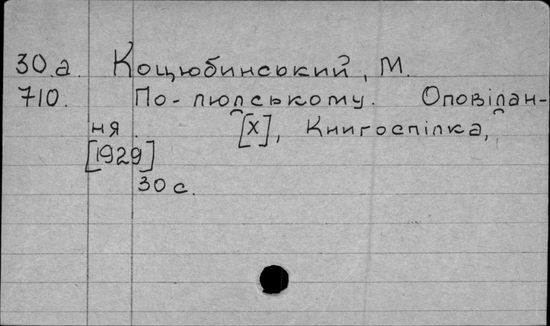 30.а. Коцюбинський, М.
710. По-людському. Оповідан-
ня. [Х], Книгоспілка,
[1929]
30 с.